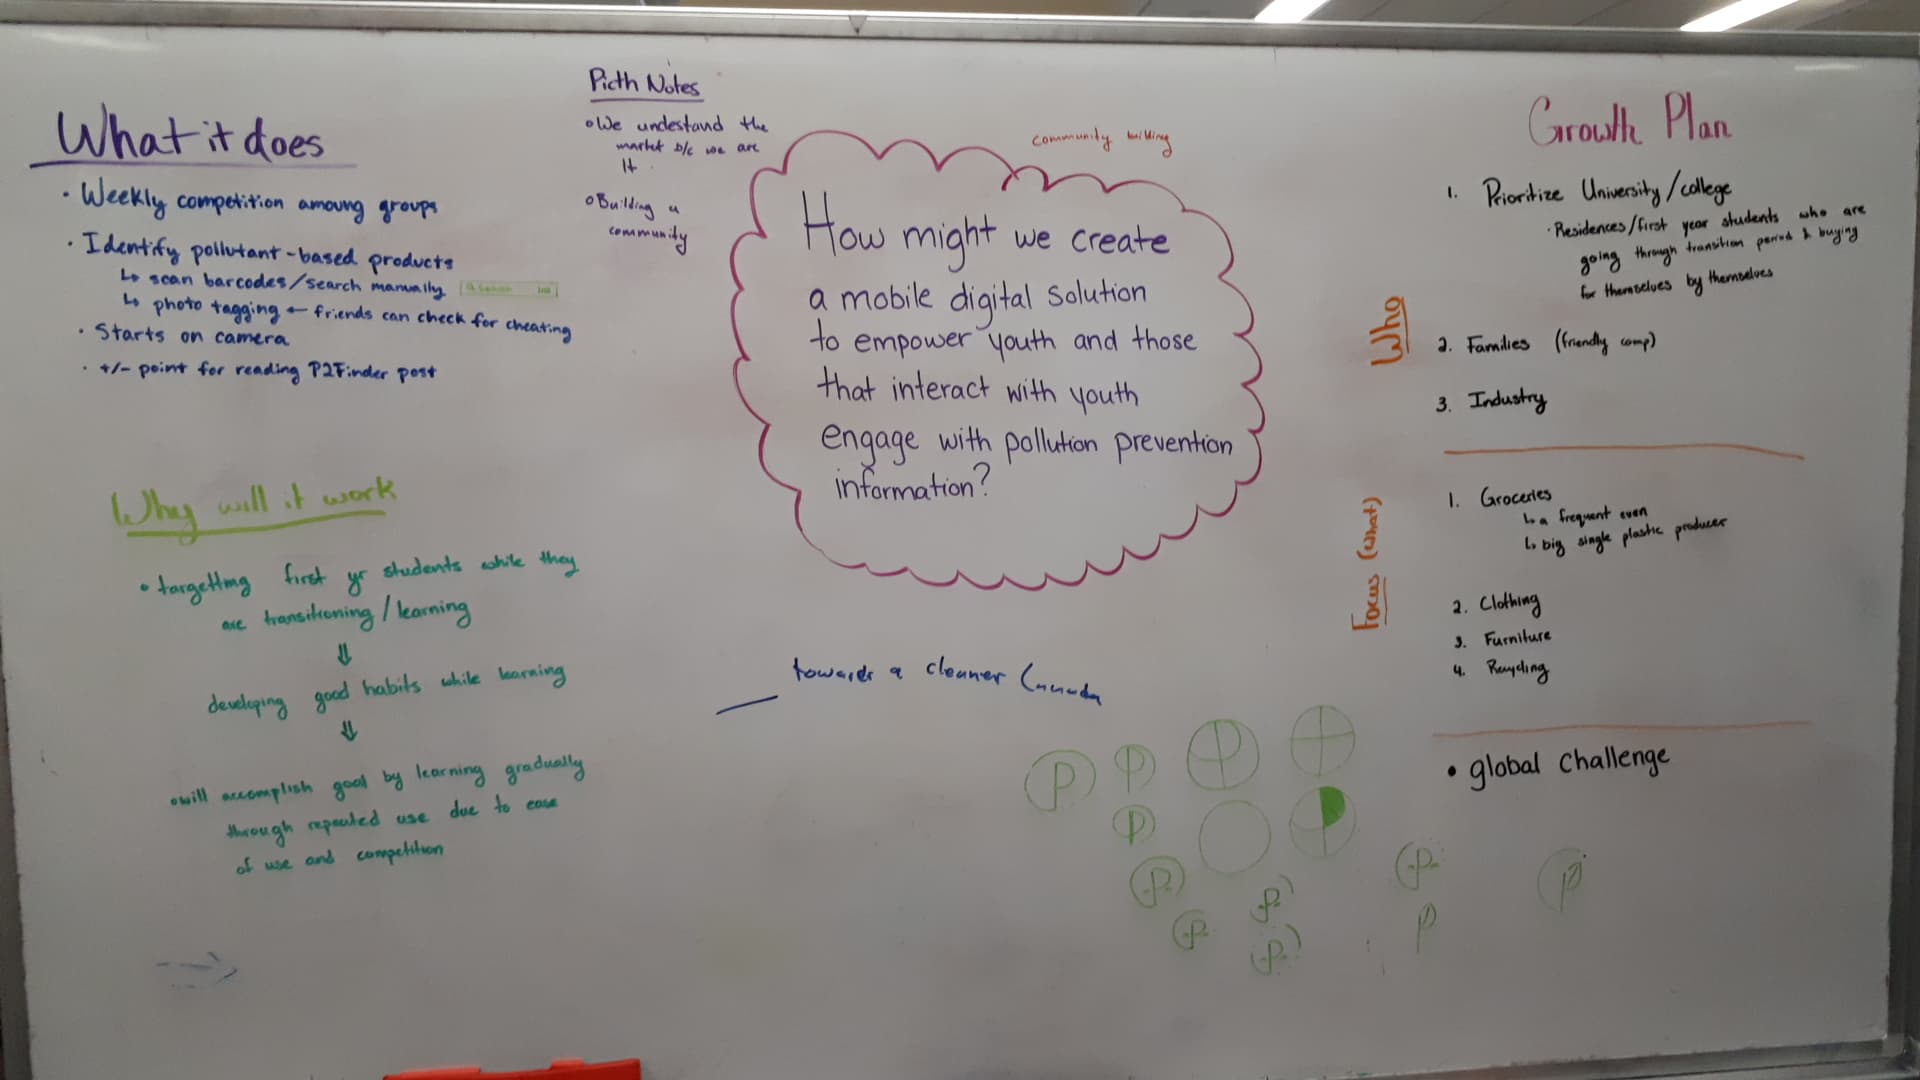 What it does
• Weekly competition amoung groups
• Identify pollutant-based products
↳ scan barcodes/search manually
↳ photo tagging ← friends can check for cheating
• Starts on camera
• +/- point for reading P2Finder post
Why will it work
• targetting first yr students while they
are transitioning/learning
⇓
developing good habits while learning
⇓
• will accomplish goal by learning gradually
through repeated use due to ease
of use and competition
Picth Notes
• We undestand the
market b/c we are
it.
• Building a
community
community
How might we create
a mobile digital solution
to empower youth and those
that interact with youth
engage with pollution prevention
information?
towards a cleaner Canada
P P
P
P P
P P
P P
P
Growth Plan
Who
1. Prioritize University/college
• Residences/first year students who are
going through transition period & buying
for themselves by themselves
2. Families (friendly comp)
3. Industry
Focus (what)
1. Groceries
↳ a frequent even
↳ big single plastic producer
2. Clothing
3. Furniture
4. Recycling
• global challenge